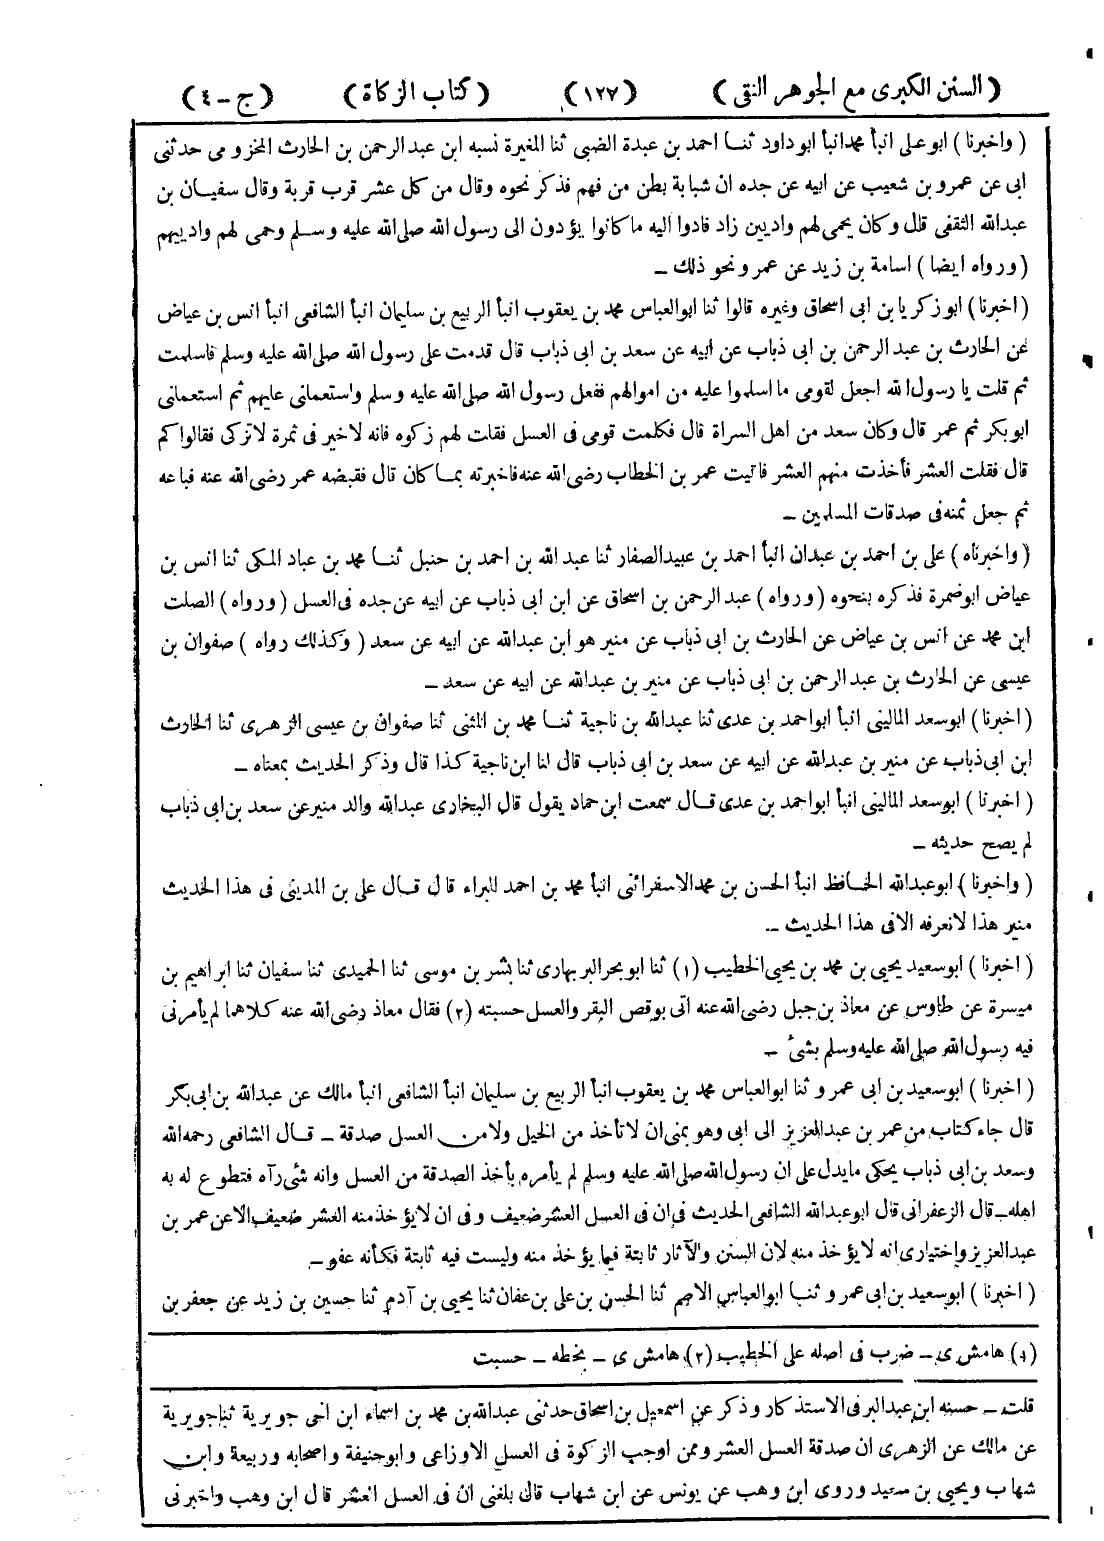 ( السنن الكبرى مع الجوهر النقى ) ( ١٢٧ ) ( كتاب الزكاة ) ( ج - ٤ )
( واخبرنا ) ابو على انبأ محمد انبأ ابو داود ثنا احمد بن عبدة الضبى ثنا المغيرة نسبه ابن عبد الرحمن بن الحارث المخزومى حدثنى
ابى عن عمرو بن شعيب عن ابيه عن جده ان شبابة بطن من فهم فذكر نحوه وقال من كل عشر قرب قربة وقال سفيان بن
عبدالله الثقفى قال وكان يحمى لهم واديين زاد فادوا اليه ما كانوا يؤدون الى رسول الله صلى الله عليه وسلم وحمى لهم وادييهم
( ورواه ايضا ) اسامة بن زيد عن عمرو نحو ذلك ـ
( اخبرنا ) ابو زكريا بن ابى اسحاق وغيره قالوا ثنا ابوالعباس محمد بن يعقوب انبأ الربيع بن سليمان انبأ الشافعى انبأ انس بن عياض
عن الحارث بن عبد الرحمن بن ابى ذباب عن ابيه عن سعد بن ابى ذباب قال قدمت على رسول الله صلى الله عليه وسلم فاسلمت
ثم قلت يا رسول الله اجعل لقومى ما اسلموا عليه من اموالهم ففعل رسول الله صلى الله عليه وسلم واستعملنى عليهم ثم استعملنى
ابو بكر ثم عمر قال وكان سعد من اهل السراة قال فكلمت قومى فى العسل فقلت لهم زكوه فانه لاخير فى ثمرة لا تزكى فقالوا كم
قال فقلت العشر فأخذت منهم العشر فاتيت عمر بن الخطاب رضى الله عنه فاخبرته بما كان قال فقبضه عمر رضى الله عنه فباعه
ثم جعل ثمنه فى صدقات المسلمين ـ
( واخبرناه ) على بن احمد بن عبدان انبأ احمد بن عبيد الصفار ثنا عبد الله بن احمد بن حنبل ثنا محمد بن عباد المكى ثنا انس بن
عياض ابو ضمرة فذكره بنحوه ( ورواه ) عبد الرحمن بن اسحاق عن ابن ابى ذباب عن ابيه عن جده فى العسل ( ورواه ) الصلت
ابن محمد عن انس بن عياض عن الحارث بن ابى ذباب عن منير هو ابن عبدالله عن ابيه عن سعد ( وكذلك رواه ) صفوان بن
عيسى عن الحارث بن عبد الرحمن بن ابى ذباب عن منير بن عبدالله عن ابيه عن سعد ـ
( اخبرنا ) ابوسعد المالينى انبأ ابواحمد بن عدى ثنا عبدالله بن ناجية ثنا محمد بن المثنى ثنا صفوان بن عيسى الزهرى ثنا الحارث
ابن ابى ذباب عن منير بن عبدالله عن ابيه عن سعد بن ابى ذباب قال لنا ابن ناجية كذا قال وذكر الحديث بمعناه ـ
( اخبرنا ) ابوسعد المالينى انبأ ابواحمد بن عدى قال سمعت ابن حماد يقول قال البخارى عبدالله والد منير عن سعد بن ابى ذباب
لم يصح حديثه ـ
( واخبرنا ) ابوعبدالله الحافظ انبأ الحسن بن محمد الاسفرائنى انبأ محمد بن احمد البراء قال قال على بن المدينى فى هذا الحديث
منير هذا لا نعرفه الا فى هذا الحديث ـ
( اخبرنا ) ابوسعيد يحيى بن محمد بن يحيى الخطيب (١) ثنا ابو بحر البر بهارى ثنا بشر بن موسى ثنا الحميدى ثنا سفيان ثنا ابراهيم بن
ميسرة عن طاوس عن معاذ بن جبل رضى الله عنه اتى بوقص البقر والعسل حسبته (٢) فقال معاذ رضى الله عنه كلاهما لم يأمرنى
فيه رسول الله صلى الله عليه وسلم بشئ ـ
( اخبرنا ) ابوسعيد بن ابى عمرو ثنا ابوالعباس محمد بن يعقوب انبأ الربيع بن سليمان انبأ الشافعى انبأ مالك عن عبدالله بن ابى بكر
قال جاء كتاب من عمر بن عبدالعزيز الى ابى وهو بمنى ان لا تأخذ من الخيل ولا من العسل صدقة ـ قال الشافعى رحمه الله
وسعد بن ابى ذباب يحكى ما يدل على ان رسول الله صلى الله عليه وسلم لم يأمره بأخذ الصدقة من العسل وانه شئ رآه فتطوع له به
اهله ـ قال الزعفرانى قال ابوعبدالله الشافعى الحديث فى ان فى العسل العشر ضعيف وفى ان لا يؤخذ منه العشر ضعيف الا عن عمر بن
عبدالعزيز واختيارى انه لا يؤخذ منه لان السنن والآثار ثابتة فيما يؤخذ منه وليست فيه ثابتة فكأنه عفو ـ
( اخبرنا ) ابوسعيد بن ابى عمرو ثنا ابوالعباس الاصم ثنا الحسن بن على بن عفان ثنا يحيى بن آدم ثنا حسين بن زيد عن جعفر بن
(١) هامش ى ـ ضرب فى اصله على الخطيب (٢) هامش ى ـ بخطه ـ حسبت
قلت ـ حسنه ابن عبدالبر فى الاستذكار وذكر عن اسمعيل بن اسحاق حدثنى عبدالله بن محمد بن اسماء ابن اخى جويرية ثنا جويرية
عن مالك عن الزهرى ان صدقة العسل العشر وممن اوجب الزكوة فى العسل الاوزاعى وابوحنيفة واصحابه وربيعة وابن
شهاب ويحيى بن سعيد وروى ابن وهب عن يونس عن ابن شهاب قال بلغنى ان فى العسل العشر قال ابن وهب واخبرنى